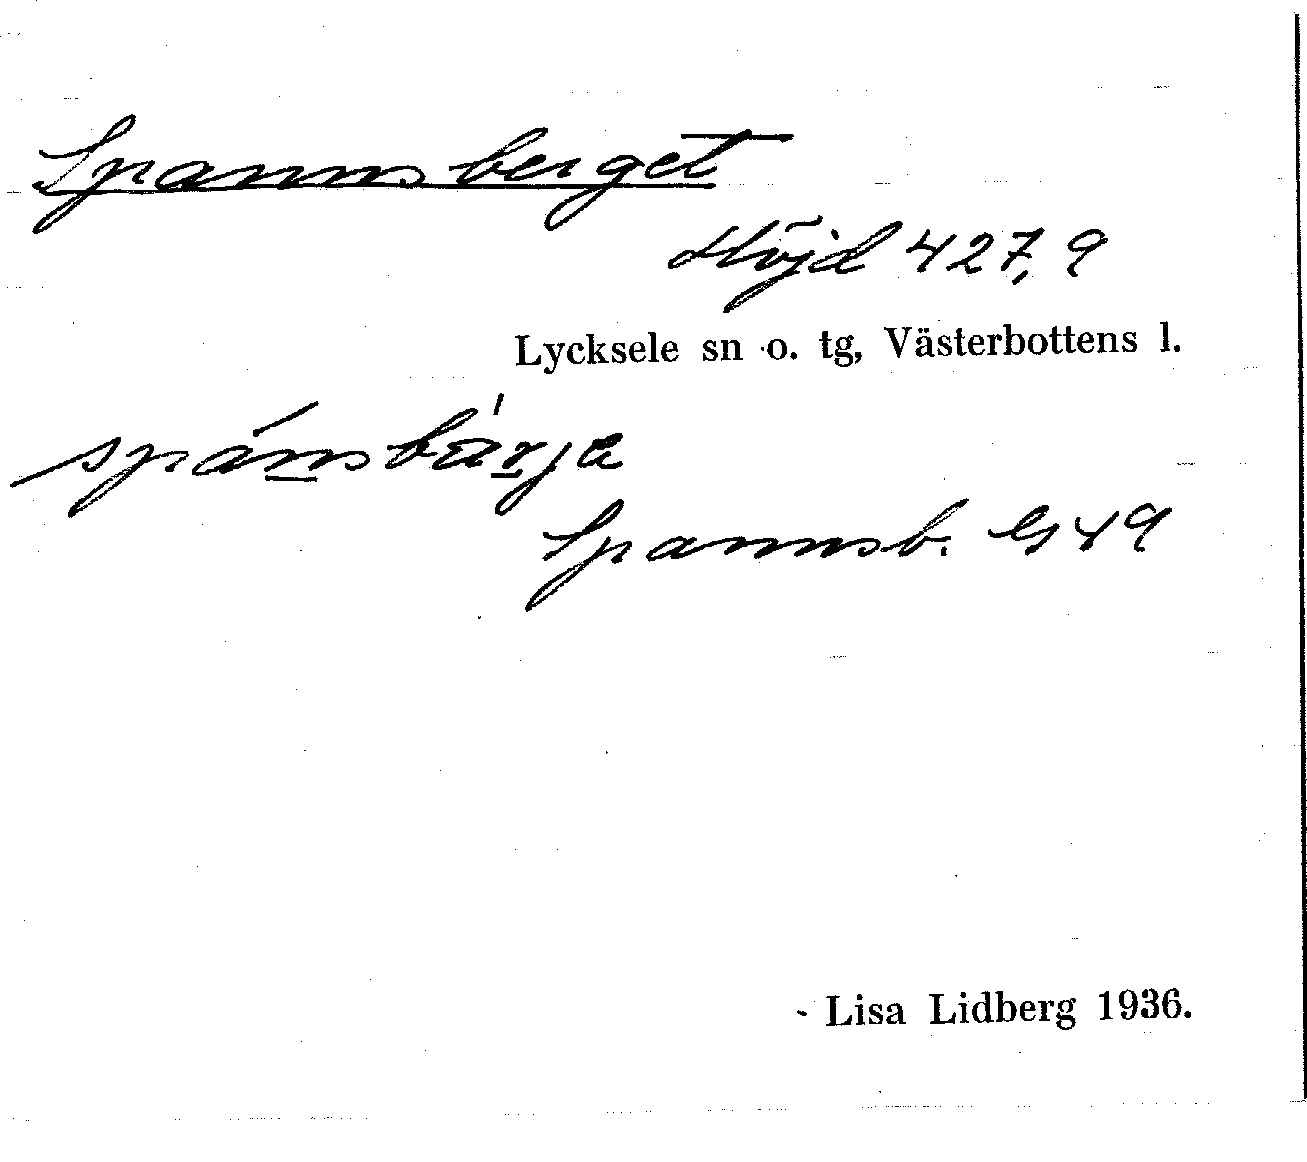 Spannsberget
Höjd 427,9
Lycksele sn o. tg, Västerbottens l.
spánsbárja
Spannsb. G49
Lisa Lidberg 1936.